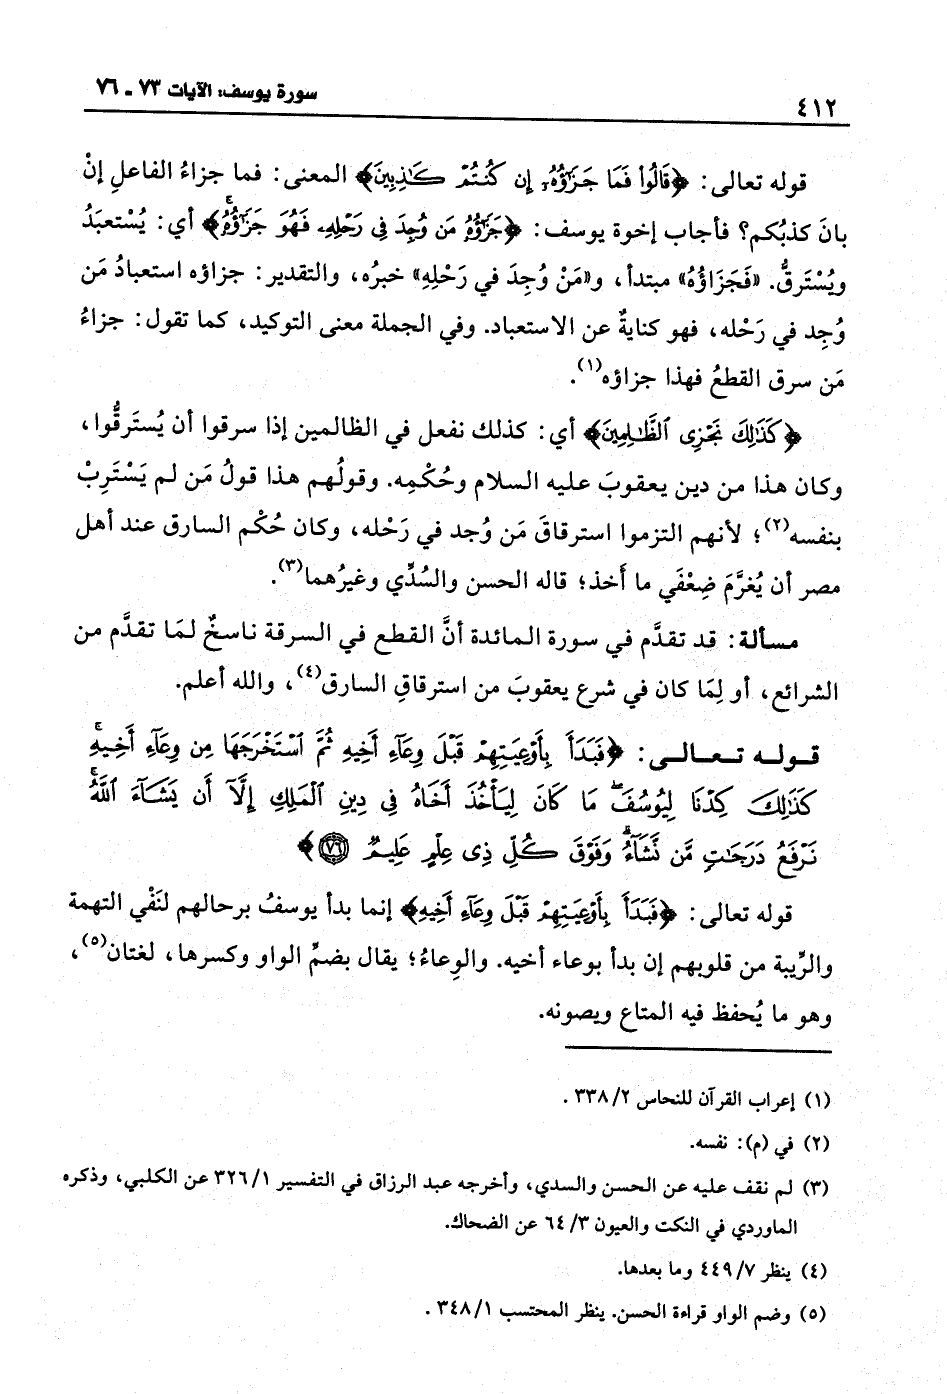 سورة يوسف: الآيات ٧٣ ـ ٧٦
٤١٢
قوله تعالى: ﴿قَالُوا۟ فَمَا جَزَٰٓؤُهُۥٓ إِن كُنتُمْ كَٰذِبِينَ﴾ المعنى: فما جزاءُ الفاعلِ إنْ
بانَ كذبُكم؟ فأجاب إخوة يوسف: ﴿جَزَٰٓؤُهُۥ مَن وُجِدَ فِى رَحْلِهِۦ فَهُوَ جَزَٰٓؤُهُۥ ۚ﴾ أي: يُسْتعبَدُ
ويُسْترقُّ. «فَجَزَاؤُهُ» مبتدأ، و«مَنْ وُجِدَ في رَحْلِهِ» خبرُه، والتقدير: جزاؤه استعبادُ مَن
وُجِد في رَحْله، فهو كنايةٌ عن الاستعباد. وفي الجملة معنى التوكيد، كما تقول: جزاءُ
مَن سرق القطعُ فهذا جزاؤه(١).
﴿كَذَٰلِكَ نَجْزِى ٱلظَّٰلِمِينَ﴾ أي: كذلك نفعل في الظالمين إذا سرقوا أن يُسترقُّوا،
وكان هذا من دين يعقوبَ عليه السلام وحُكْمِه. وقولُهم هذا قولُ مَن لم يَسْتَرِبْ
بنفسه(٢)؛ لأنهم التزموا استرقاقَ مَن وُجد في رَحْله، وكان حُكْم السارق عند أهل
مصر أن يُغرَّمَ ضِعْفَي ما أَخذ؛ قاله الحسن والسُدِّي وغيرُهما(٣).
مسألة: قد تقدَّم في سورة المائدة أنَّ القطع في السرقة ناسخٌ لمَا تقدَّم من
الشرائع، أو لِمَا كان في شرع يعقوبَ من استرقاقِ السارق(٤)، والله أعلم.
قوله تعالى: ﴿فَبَدَأَ بِأَوْعِيَتِهِمْ قَبْلَ وِعَآءِ أَخِيهِ ثُمَّ ٱسْتَخْرَجَهَا مِن وِعَآءِ أَخِيهِ ۚ
كَذَٰلِكَ كِدْنَا لِيُوسُفَ ۖ مَا كَانَ لِيَأْخُذَ أَخَاهُ فِى دِينِ ٱلْمَلِكِ إِلَّآ أَن يَشَآءَ ٱللَّهُ ۚ
نَرْفَعُ دَرَجَٰتٍ مَّن نَّشَآءُ ۗ وَفَوْقَ كُلِّ ذِى عِلْمٍ عَلِيمٌ ٧٦﴾
قوله تعالى: ﴿فَبَدَأَ بِأَوْعِيَتِهِمْ قَبْلَ وِعَآءِ أَخِيهِ﴾ إنما بدأ يوسفُ برحالهم لنَفْي التهمة
والرِّيبة من قلوبهم إن بدأ بوعاء أخيه. والوِعاءُ؛ يقال بضمِّ الواو وكسرها، لغتان(٥)،
وهو ما يُحفظ فيه المتاع ويصونه.
(١) إعراب القرآن للنحاس ٣٣٨/٢ .
(٢) في (م): نفسه.
(٣) لم نقف عليه عن الحسن والسدي، وأخرجه عبد الرزاق في التفسير ٣٢٦/١ عن الكلبي، وذكره
الماوردي في النكت والعيون ٦٤/٣ عن الضحاك.
(٤) ينظر ٤٤٩/٧ وما بعدها.
(٥) وضم الواو قراءة الحسن. ينظر المحتسب ٣٤٨/١ .